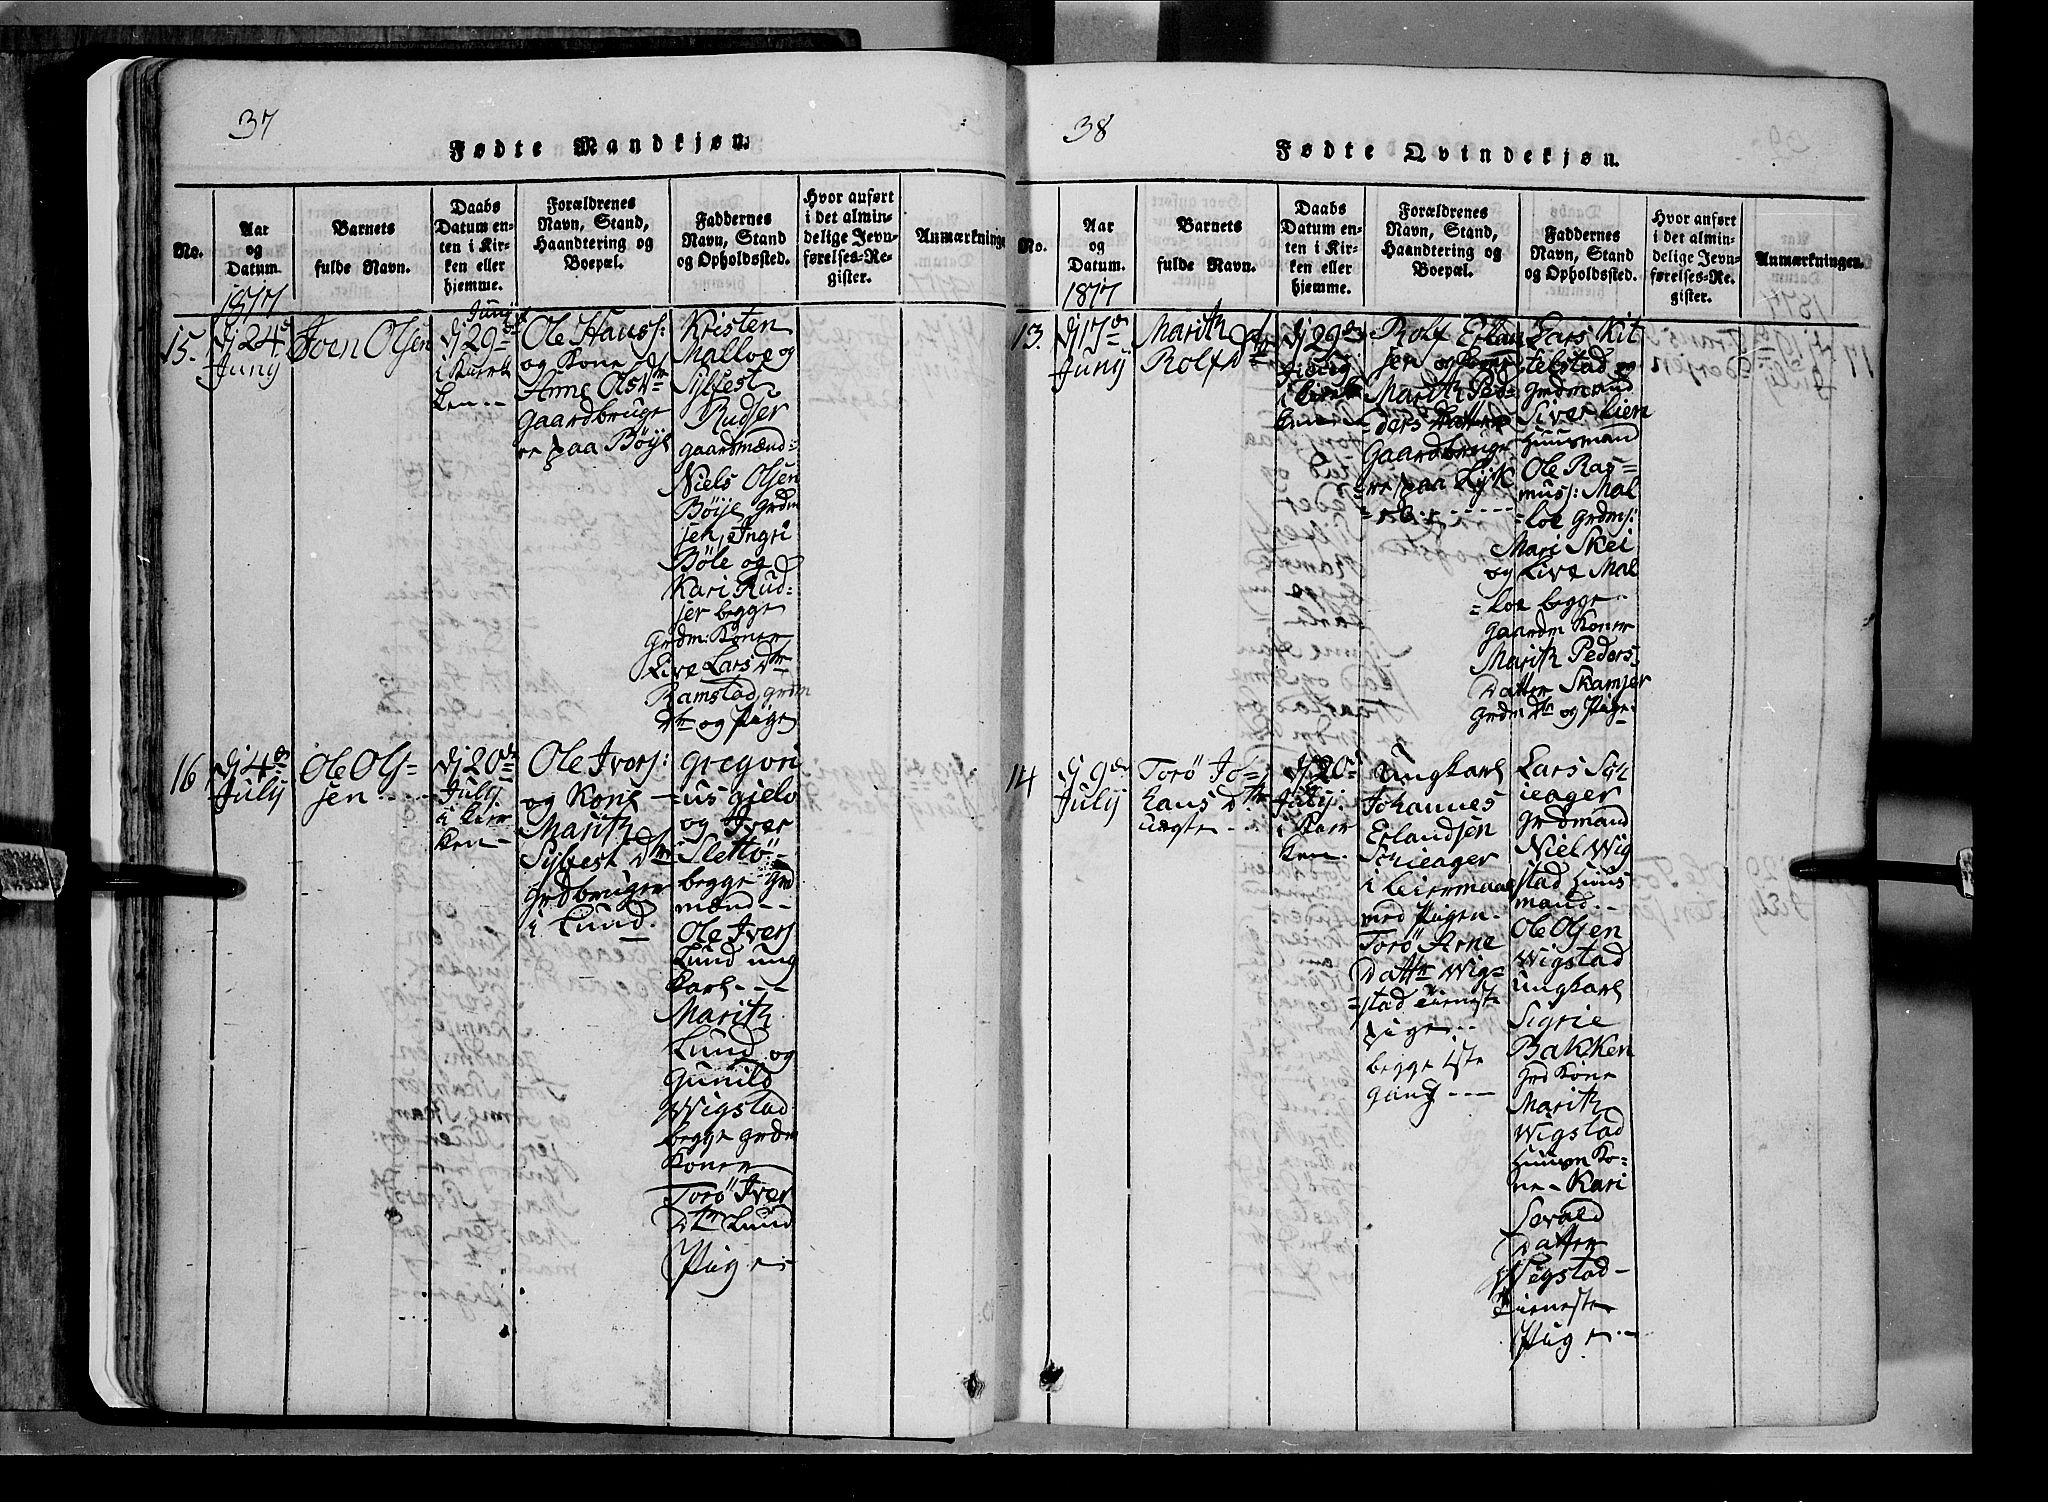 37
Fødte Mandkjøn.
No.
Aar
og
Datum.
Barnets
fulde Navn.
Daabs
Datum en-
ten i Kir-
ken eller
hjemme.
Forældrenes
Navn, Stand,
Haandtering og
Boepæl.
Faddernes
Navn, Stand
og Opholdssted.
Hvor anført
i det almin-
delige Jevn-
førelses-Re-
gister.
Anmærkninge
1817
15.
Dj 24de
Junÿ
Joen Olsen
Junÿ
Dj 29de
i Kierk
ken --
Ole Hanss:
og Kone
Anne Olsdtr
Gaardbruge
re paa Böÿe
Kristen
Malloe og
Sylfest
Rudser
gaardmænd=
Niels Olsen
Böÿe Grdm
sen, Ingri
Böle og
Kari Rud=
ser begge
Grdm: Koner
Live Lars Dtr
Ramstad, grdm
Dtr og Pige
16
Dj 4de
July
Ole Ol=
sen ----
Dj 20de
July
i Kier
ken -
Ole Ivers:
og Kone -
Marith
Sylfest Dtr
Grdbruger
i Lund.
Gregori
us gielv
og Iver
Slettö=
begge Grd
mænd --
Ole Ivers
Lund ung
karl ---
Marith
Lund og
Gunild
Wigstad
begge Grdm
Koner
Torö Iver
Dtr Lund
Pige -
38
Fødte Qvindekjøn.
No.
Aar
og
Datum.
Barnets
fulde Navn.
Daabs
Datum en-
ten i Kir-
ken eller
hjemme.
Forældrenes
Navn, Stand,
Haandtering og
Boepæl.
Faddernes
Navn, Stand
og Opholdssted.
Hvor anført
i det almin-
delige Jevn-
førelses-Re-
gister.
Anmærkningen.
1817
13.
Dj 17de
Junÿ
Marith
Rolfs Dtr
Dj 29de
Rolf Erlan
sen og Kone
Marith Ped=
ders Datter
Gaardbruge
=re paa
Lars Kit
telstad og
Grdmand
Siver Lien
Huusmand
Ole Ras=
muss: Mal
=loe Grdms:
Mari Skei
og Live Mal
=loe begge
Gaardm Koner
Marith Peders
Datter Skamser
Grdm Dtr og Pige
14
Dj 9de
Julÿ
Torö Jo=
hans Dtr
uægte --
Dj 20de
July:
i Kier
ken.
Ungkarl
Johannes
Erlandsen
Schieager
med Pigen.
Torö Arne
Datter Wig=
=stad tieneste
pige --
begge 1ste
Gang ---
Lars Sch
ieager
Grdmand
Niel Wig
stad Huus
mand.
Ole Olsen
Wigstad
ungkarl
Sigrie
Bakken
Grd Kone
Marith
Wigstad
Huusm Ko=
ne - Kari
Datter
Wegstad -
tieneste
Pige --